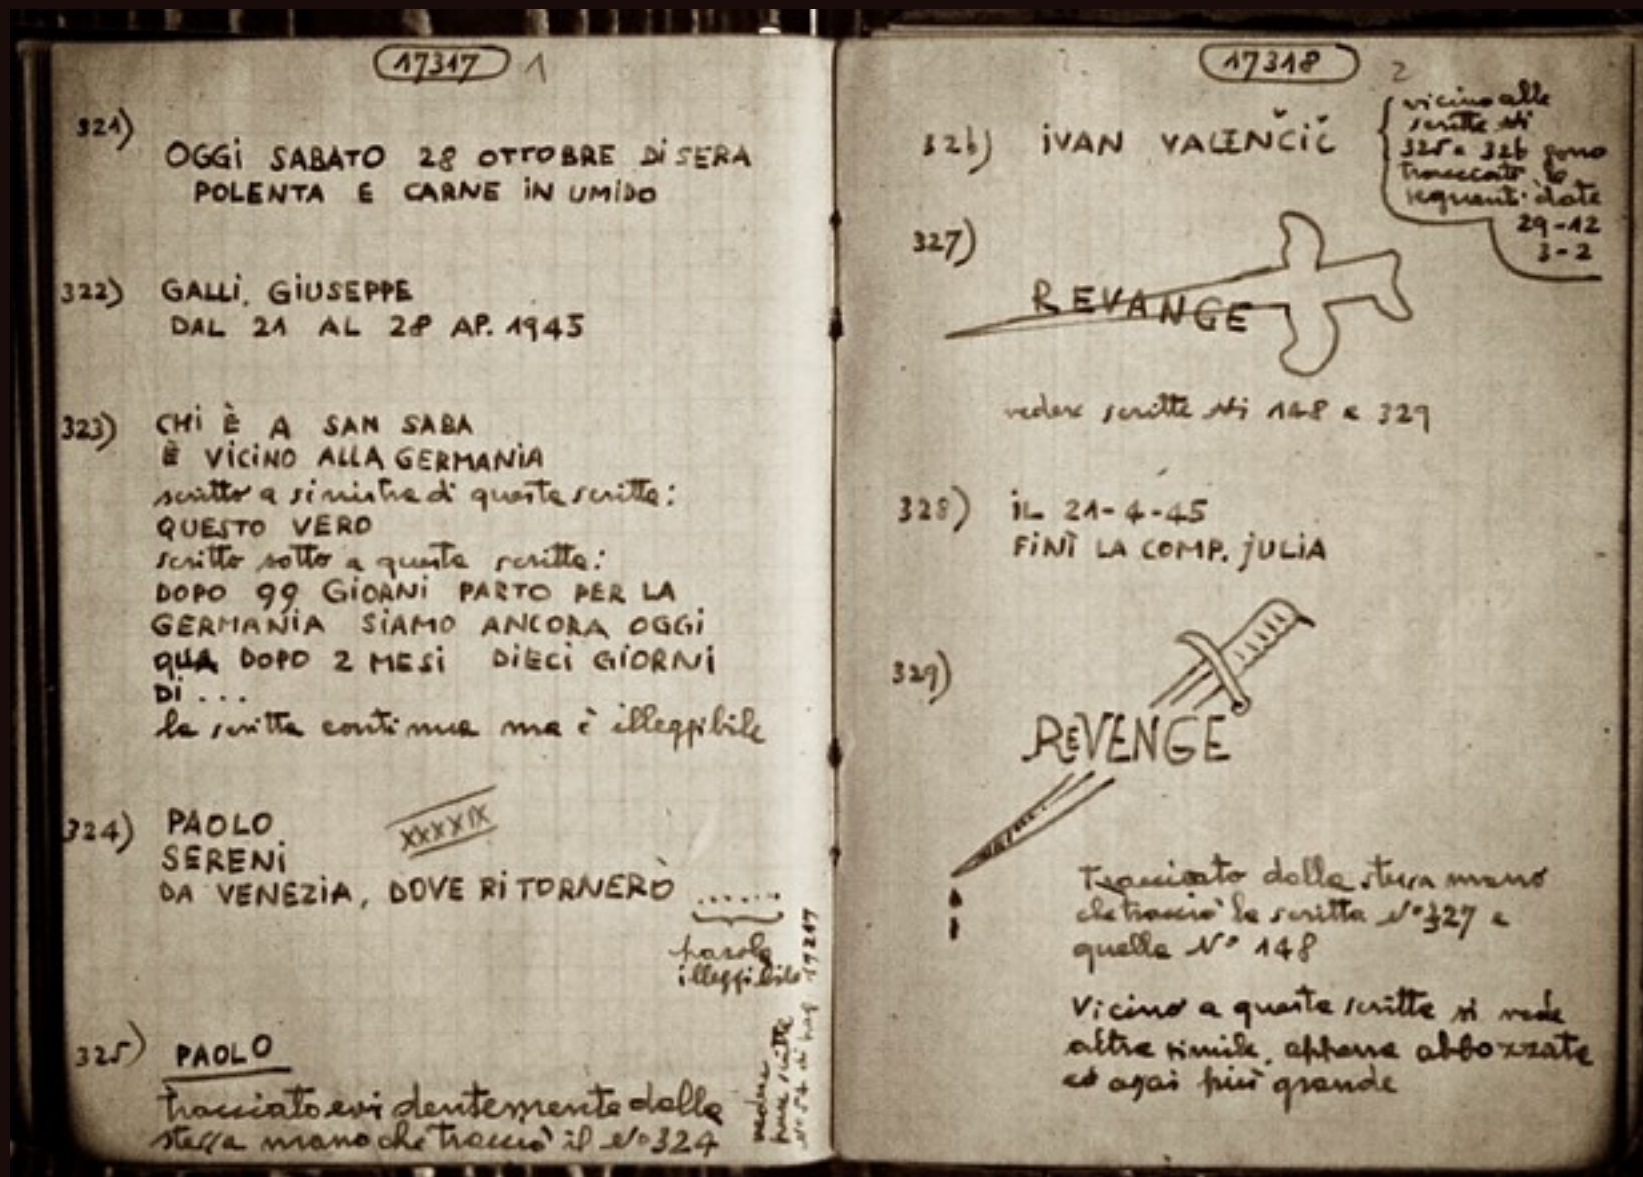 17317 1
321)
OGGI SABATO 28 OTTOBRE DI SERA
POLENTA E CARNE IN UMIDO
322) GALLI, GIUSEPPE
DAL 21 AL 28 AP. 1945
323) CHI È A SAN SABA
È VICINO ALLA GERMANIA
scritto a sinistra di questa scritta:
QUESTO VERO
scritto sotto a questa scritta:
DOPO 99 GIORNI PARTO PER LA
GERMANIA SIAMO ANCORA OGGI
QUA DOPO 2 MESI DIECI GIORNI
DI ...
la scritta continua ma è illeggibile
324) PAOLO XXXXIX
SERENI
DA VENEZIA, DOVE RITORNERÒ ......
parola
illeggibile
325) PAOLO
tracciato evidentemente dalla
stessa mano che tracciò il N° 324
vedere
pure scritte
N° 54 di pag
17318 2
326) IVAN VALENČIČ
vicino alle
scritte Ni
325 e 326 sono
tracciate le
seguenti date
29-12
3-2
327)
REVANGE
vedere scritte Ni 148 e 329
328) IL 21-4-45
FINÌ LA COMP. JULIA
329)
REVENGE
Tracciato dalla stessa mano
che tracciò la scritta N° 327 e
quella N° 148
Vicino a questa scritta si vede
altra simile, appena abbozzata
ed assai più grande